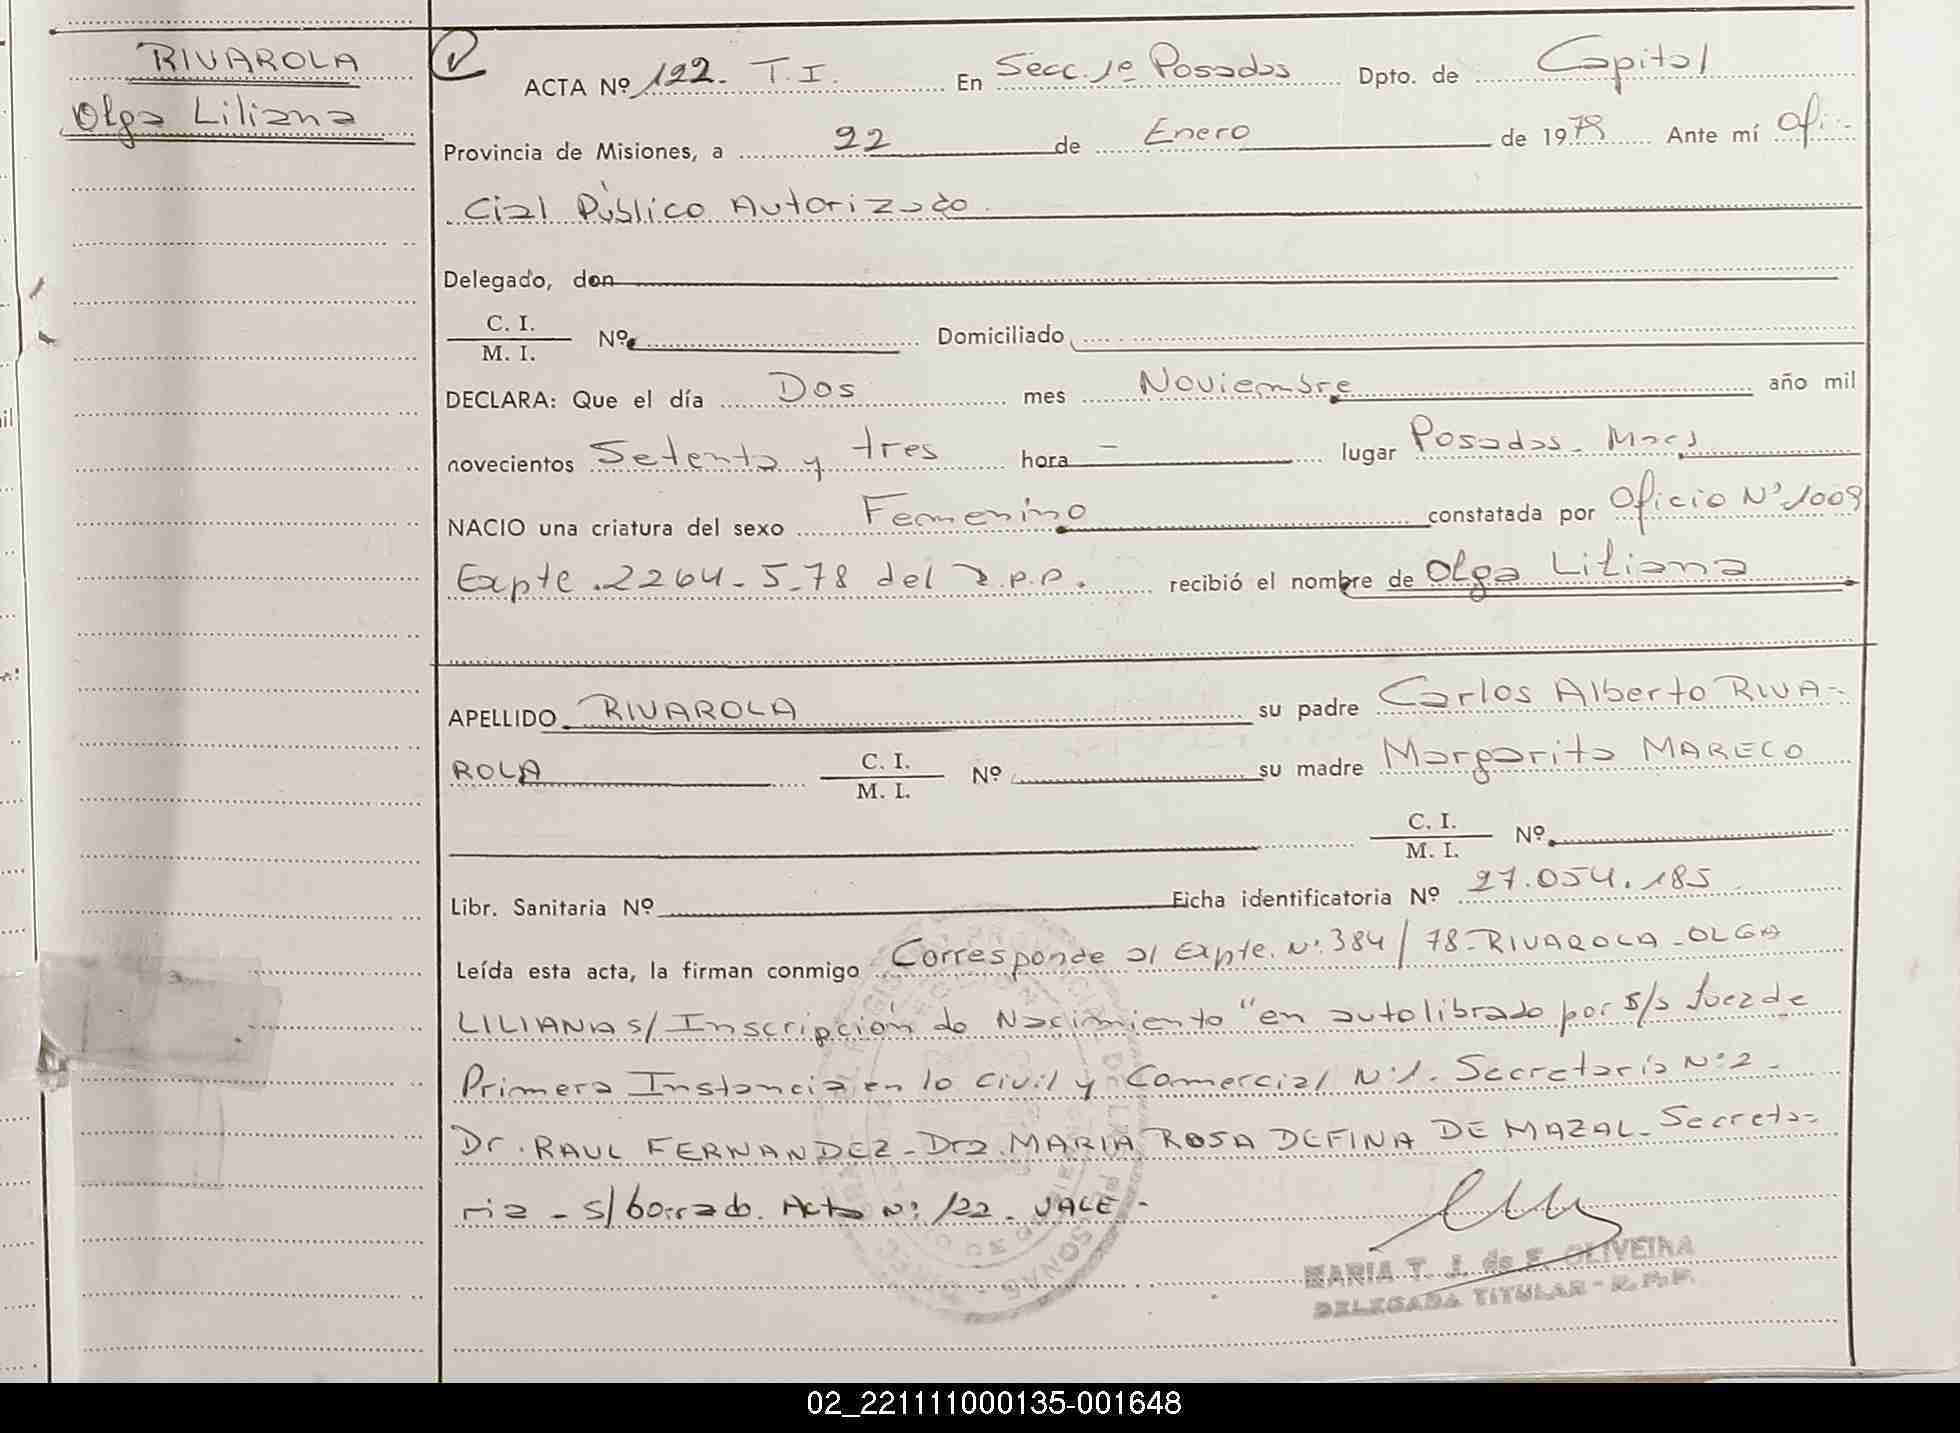 RIVAROLA
Olga Liliana
ACTA Nº 122. T.I. En Secc. 1º Posadas Dpto. de Capital
Provincia de Misiones, a 22 de Enero de 1979 Ante mí Ofi-
cial Público Autorizado.
Delegado, don
C. I.
M. I. Nº Domiciliado
DECLARA: Que el día Dos mes Noviembre año mil
novecientos Setenta y tres hora - lugar Posadas - Mnes
NACIO una criatura del sexo Femenino constatada por Oficio Nº 1009
Expte. 2264-5-78 del R.P.P. recibió el nombre de Olga Liliana
APELLIDO RIVAROLA su padre Carlos Alberto RIVA-
ROLA C. I. M. I. Nº su madre Margarita MARECO
C. I.
M. I. Nº
Libr. Sanitaria Nº Ficha identificatoria Nº 27.054.185
Leída esta acta, la firman conmigo Corresponde al Expte. Nº 384/78-RIVAROLA-OLGA
LILIANA s/ Inscripción de Nacimiento" en auto librado por S/S Juez de
Primera Instancia en lo Civil y Comercial Nº 1. Secretaría Nº 2 -
Dr. RAUL FERNANDEZ - Dra. MARIA ROSA DEFINA DE MAZAL - Secreta-
ria - s/borrado. Acta Nº 122. VALE -
MARIA T. J. de F. OLIVEIRA
DELEGADA TITULAR - R.P.P.
02_221111000135-001648